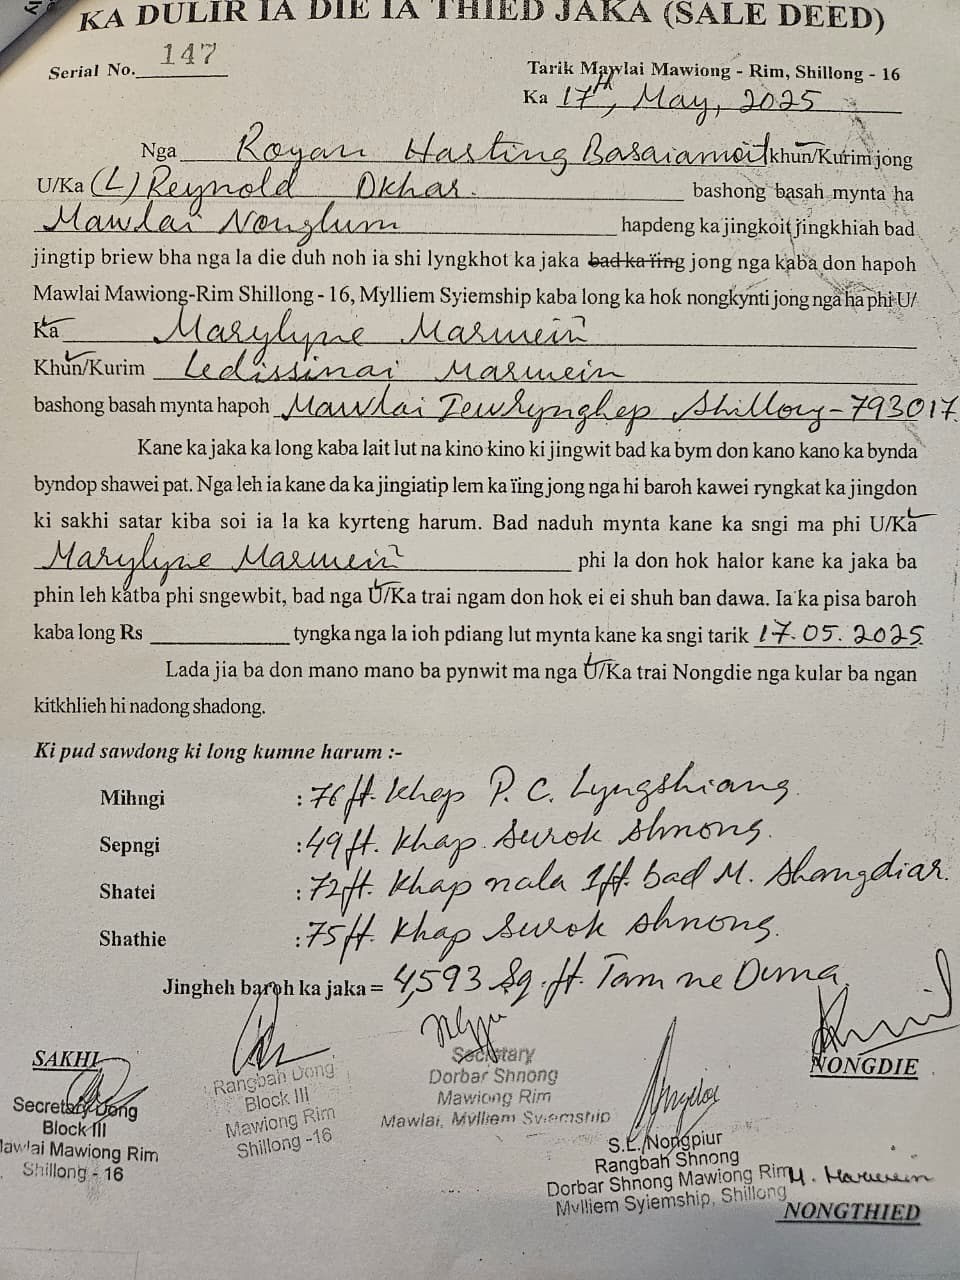 KA DULIR IA DIE IA THIED JAKA (SALE DEED)
Serial No. 147
Tarik Mawlai Mawiong - Rim, Shillong - 16
Ka 17th, May, 2025
Nga Royan Hasting Basaiamoit khun/Kurim jong
U/Ka (L) Reynold Dkhar. bashong basah mynta ha
Mawlai Nonglum hapdeng ka jingkoit jingkhiah bad
jingtip briew bha nga la die duh noh ia shi lyngkhot ka jaka bad ka ïing jong nga kaba don hapoh
Mawlai Mawiong-Rim Shillong - 16, Mylliem Syiemship kaba long ka hok nongkynti jong nga ha phi U/
Ka Marylyne Marwein
Khun/Kurim Ledissinai Marwein
bashong basah mynta hapoh Mawlai Iewrynghep Shillong - 793017.
Kane ka jaka ka long kaba lait lut na kino kino ki jingwit bad ka bym don kano kano ka bynda
byndop shawei pat. Nga leh ia kane da ka jingiatip lem ka ïing jong nga hi baroh kawei ryngkat ka jingdon
ki sakhi satar kiba soi ia la ka kyrteng harum. Bad naduh mynta kane ka sngi ma phi U/Ka
Marylyne Marwein phi la don hok halor kane ka jaka ba
phin leh katba phi sngewbit, bad nga U/Ka trai ngam don hok ei ei shuh ban dawa. Ia ka pisa baroh
kaba long Rs tyngka nga la ioh pdiang lut mynta kane ka sngi tarik 17.05.2025
Lada jia ba don mano mano ba pynwit ma nga U/Ka trai Nongdie nga kular ba ngan
kitkhlieh hi nadong shadong.
Ki pud sawdong ki long kumne harum :-
Mihngi : 76 ft. khap P. C. Lyngshiang.
Sepngi : 49 ft. khap surok shnong.
Shatei : 72 ft. khap nala 1ft. bad M. Shangdiar.
Shathie : 75 ft. khap surok shnong.
Jingheh baroh ka jaka = 4,593 Sq. ft. Tam ne Duna
SAKHI
NONGDIE
Secretary Dong
Block III
Mawlai Mawiong Rim
Shillong - 16
Rangbah Dong
Block III
Mawiong Rim
Shillong -16
Secretary
Dorbar Shnong
Mawiong Rim
Mawlai, Mylliem Syiemship
S.L. Nongpiur
Rangbah Shnong
Dorbar Shnong Mawiong Rim
Mylliem Syiemship, Shillong
M. Marwein
NONGTHIED